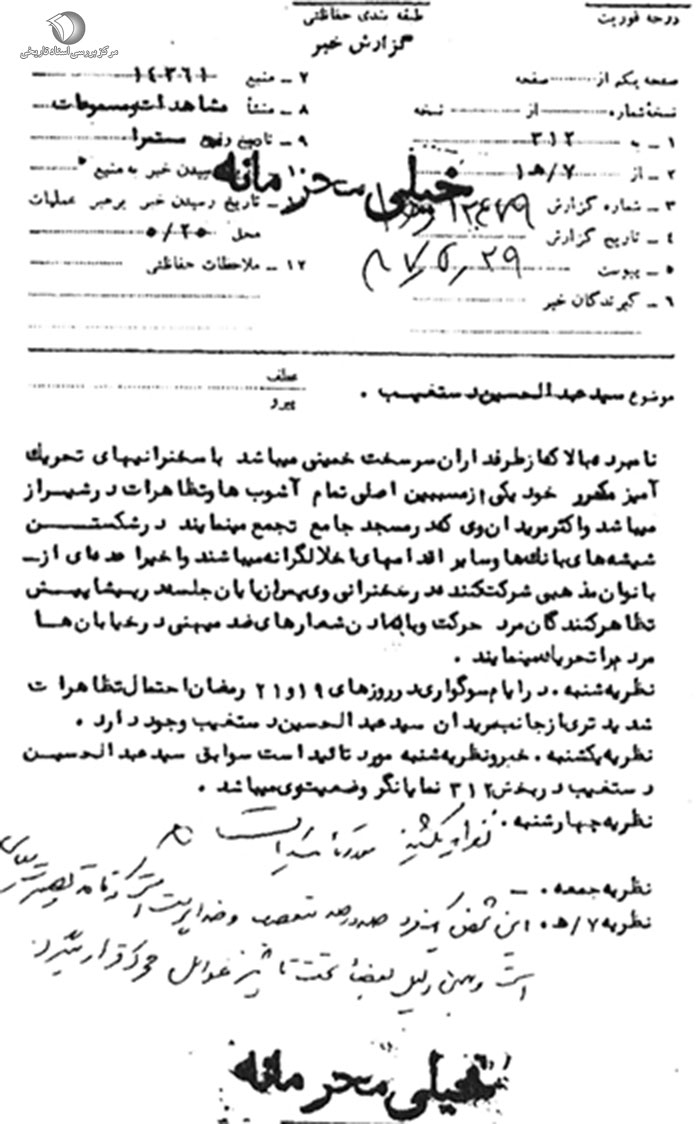 مرکز بررسی اسناد تاریخی
درجه فوریت
طبقه بندی حفاظتی
گزارش خبر
صفحه یکم از صفحه
نسخه شماره از نسخه
۱ ــ به ۳۱۲
۲ ــ از ۷/هـ۱
۳ ــ شماره گزارش ۱۲۴۷۹
۴ ــ تاریخ گزارش
۵ ــ پیوست
۶ ــ گیرندگان خبر
۷ ــ منبع ۱۴۳۶۱
۸ ــ منشأ مشاهدات ومسموعات
۹ ــ تاریخ وقوع مستمرا
رسیدن خبر به منبع
تاریخ رسیدن خبر برهبر عملیات
محل ۵/۲۵
۱۲ ــ ملاحظات حفاظتی
خیلی محرمانه
موضوع سیدعبدالحسین دستغیب .
عطف
پیرو
نامبرده بالا که از طرفداران سرسخت خمینی میباشد با سخنرانیهای تحریک
آمیز مکرر خود یکی از مسببین اصلی تمام آشوب ها وتظاهرات در شیراز
میباشد واکثر مریدان وی که در مسجد جامع تجمع مینمایند در شکستن
شیشه های بانک ها وسایر اقدامهای اخلالگرانه میباشند واخیرا عده ای از ــ
بانوان مذهبی شرکت کننده در سخنرانی وی پس از پایان جلسه در پیشاپیش
تظاهرکنندگان مرد حرکت وبا دادن شعارهای ضد میهنی در خیابان ها
مردم را تحریک مینمایند .
نظریه شنبه . در ایام سوگواری در روزهای ۱۹ و ۲۱ رمضان احتمال تظاهرات
شدیدتری از جانب مریدان سیدعبدالحسین دستغیب وجود دارد .
نظریه یکشنبه . خبر ونظریه شنبه مورد تائید است سوابق سیدعبدالحسین
دستغیب در بخش ۳۱۲ نمایانگر وضعیت وی میباشد .
نظریه چهارشنبه . نظریه یکشنبه مورد تائید است
نظریه جمعه . ــ
نظریه ۷/هـ . این شخص صددرصد متعصب و
است و بهمین دلیل بعضاً تحت تاثیر عوامل قرار میگیرد
خیلی محرمانه